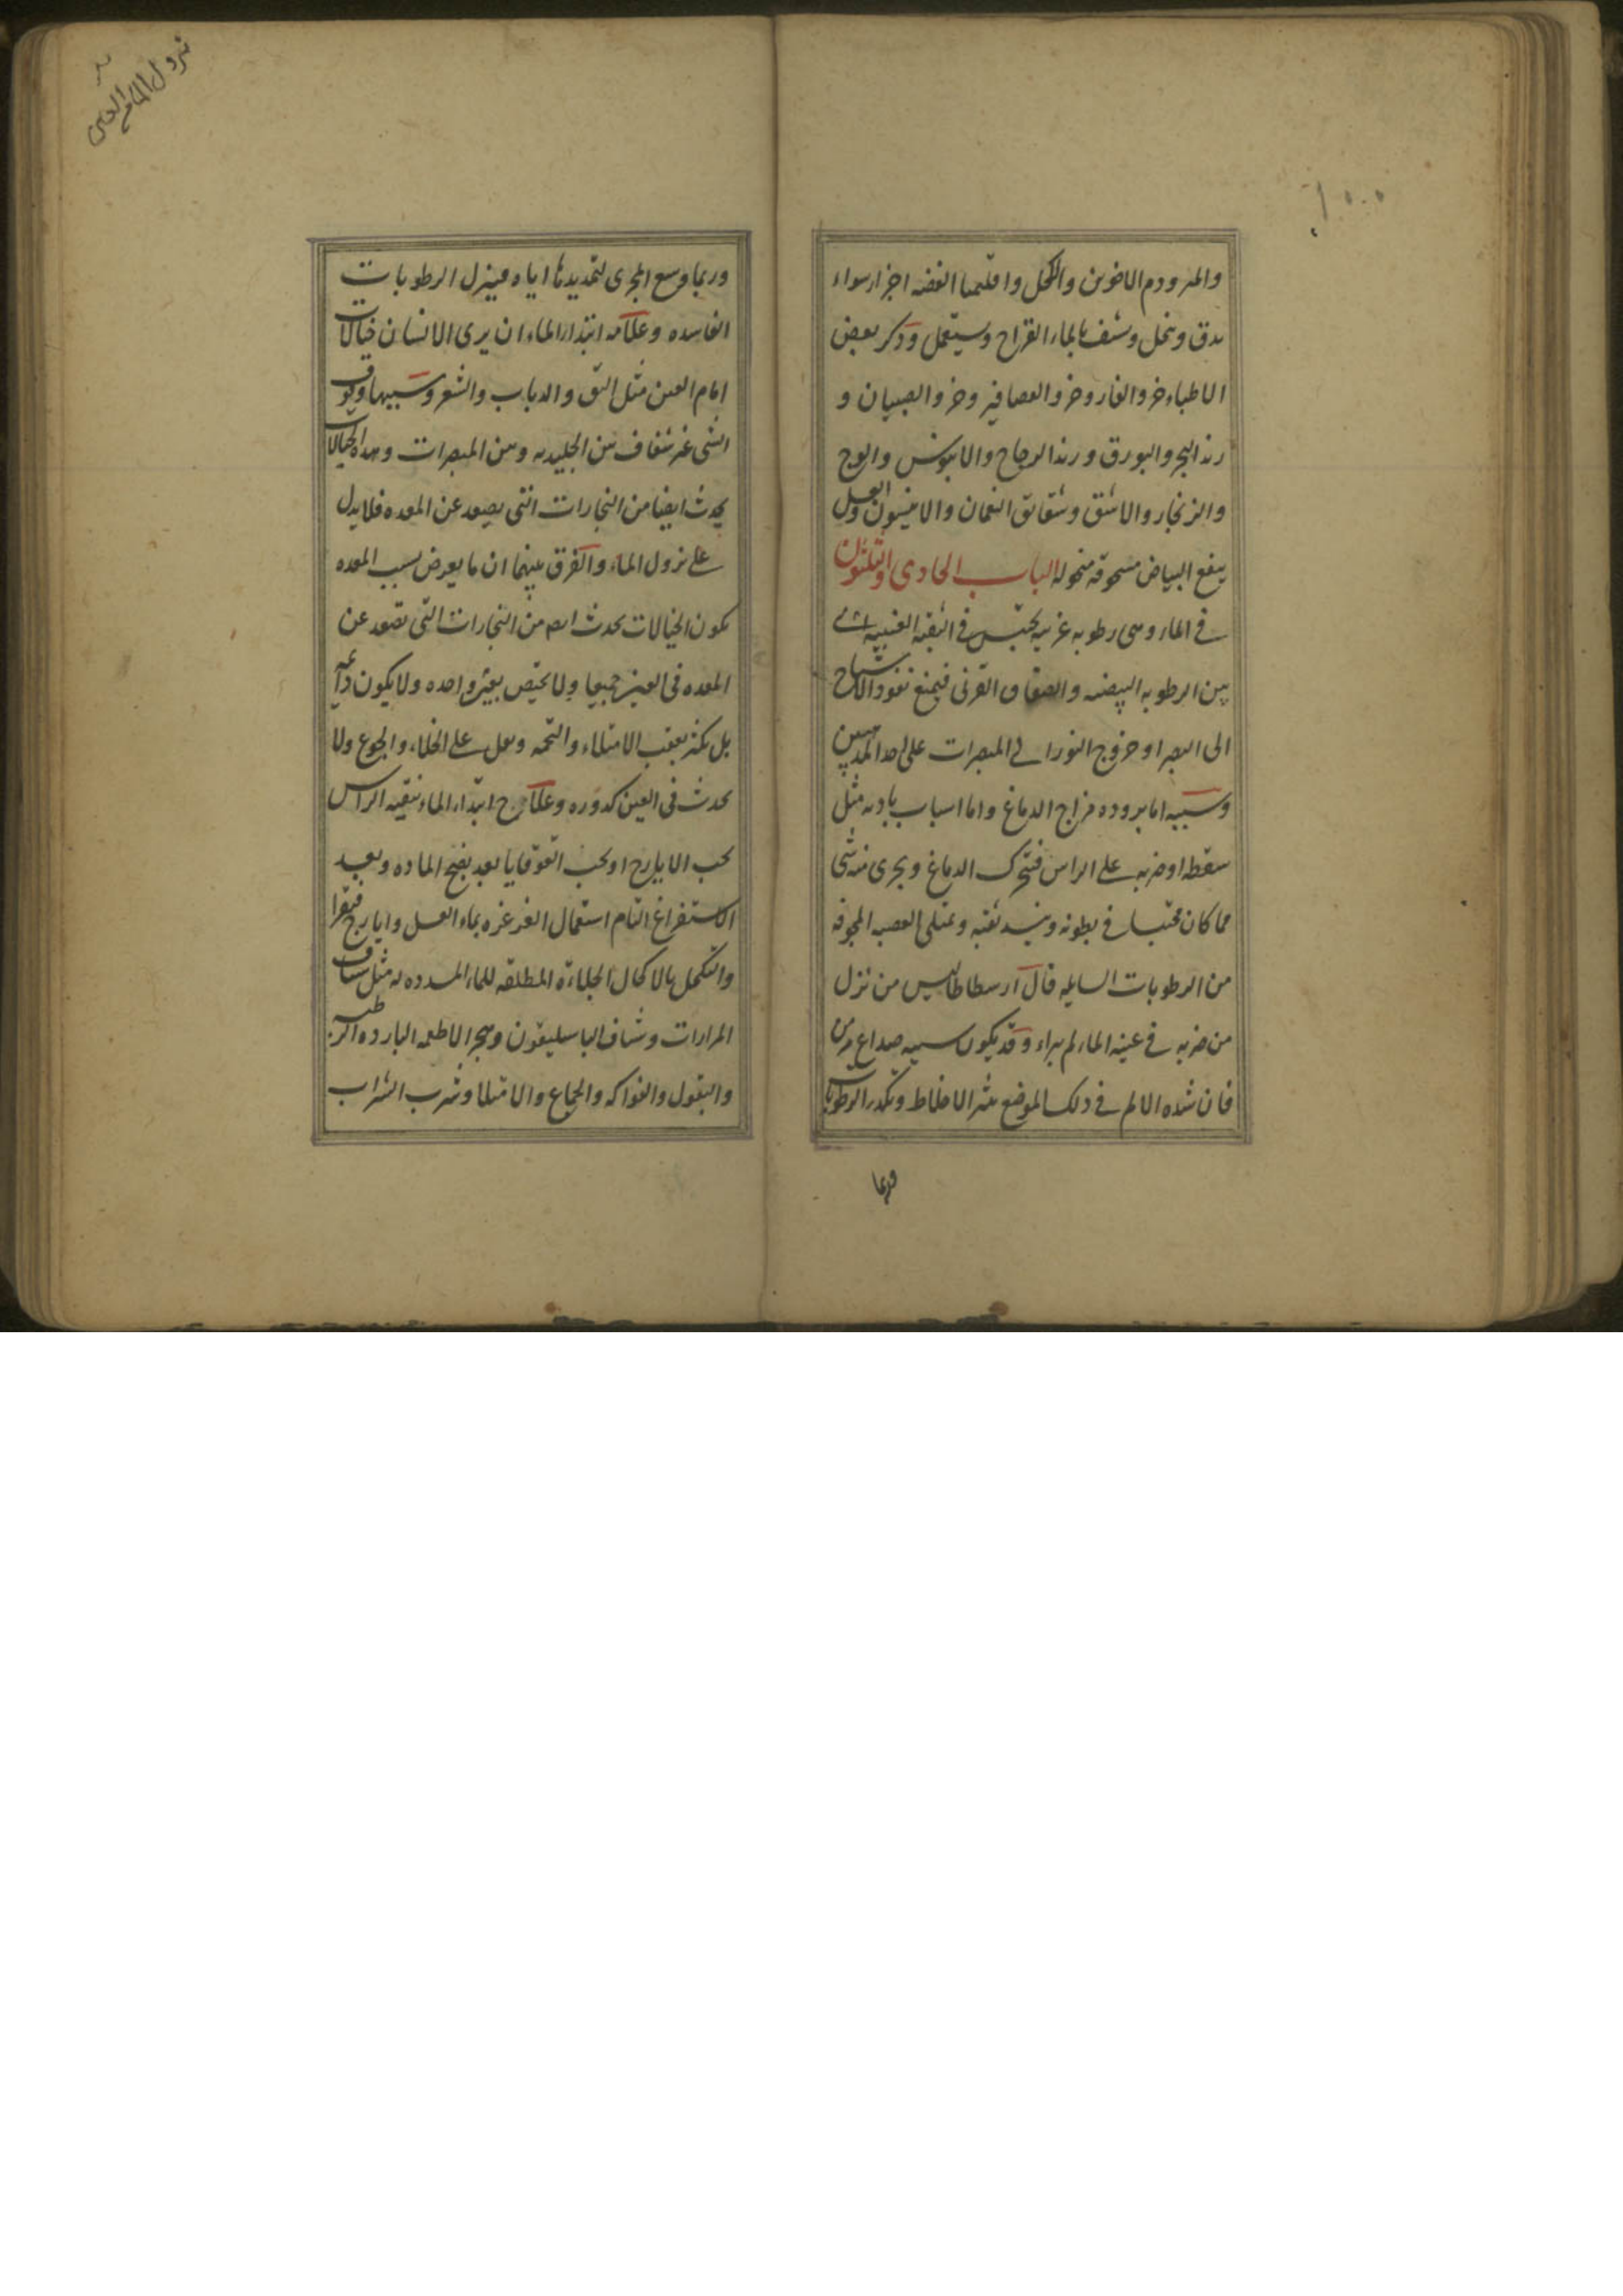 والمر ودم الاخوين والكحل واقليميا الفضه اجزا سواء
يدق وينخل ويشف بالماء القراح ويستعمل وذكر بعض
الاطباء خرو الفار وخرو العصافير وخرو الصبيان و
زبد البحر والبورق وزبد الزجاج والابنوس والوج
والزنجار والاشق وشقائق النعمان والانيسون والعسل
ينفع البياض مسحوقه منخوله الباب الحادى والثلثون
فى الماء وهى رطوبه غريبه يحتبس فى الثقبه العنبيه
بين الرطوبه البيضيه والصفاق القرنى فيمنع نفوذ الاشباح
الى البصر او خروج النور الى المبصرات على احد المذهبين
وسببه اما بروده مزاج الدماغ واما اسباب باديه مثل
سقطه او ضربه على الراس فيتحرك الدماغ ويجرى منه شى
مما كان محتبسا فى بطونه وينسد ثقبه ويمتلى العصبه المجوفه
من الرطوبات السايله قال ارسطاطاليس من نزل
من ضربه فى عينه الماء لم يبراء وقد يكون سببه صداع مزمن
فان شده الالم فى ذلك الموضع يثير الاخلاط ويكدر الرطوبات
وربما
نزول الماء فى العين
وربما وسع المجرى لتمديدها اياه فينزل الرطوبات
الفاسده وعلامه ابتداء الماء ان يرى الانسان خيالات
امام العين مثل البق والذباب والشعر وسببها وقوف
الشى غير شفاف بين الجليديه وبين المبصرات وهذه الخيالات
يحدث ايضا من البخارات التى يصعد عن المعده فلا يدل
على نزول الماء والفرق بينهما ان ما يعرض بسبب المعده
يكون الخيالات يحدث من البخارات التى تصعد عن
المعده فى العينين جميعا ولا يختص بعين واحده ولا يكون دائمه
بل يكثر بعقب الامتلاء والتخمه ويقل على الخلاء والجوع ولا
يحدث فى العين كدوره وعلاج ابتداء الماء تنقيه الراس
بحب الايارج او بحب القوقايا بعد نضج الماده وبعد
الاستفراغ التام استعمال الغرغره بماء العسل وايارج فيقرا
والتكحل بالاكحال الجلاءة الملطفه للماء المبدده له مثل شياف
المرارات وشياف الباسليقون وهجر الاطعمه البارده الرطبه
والبقول والفواكه والجماع والامتلا وشرب الشراب